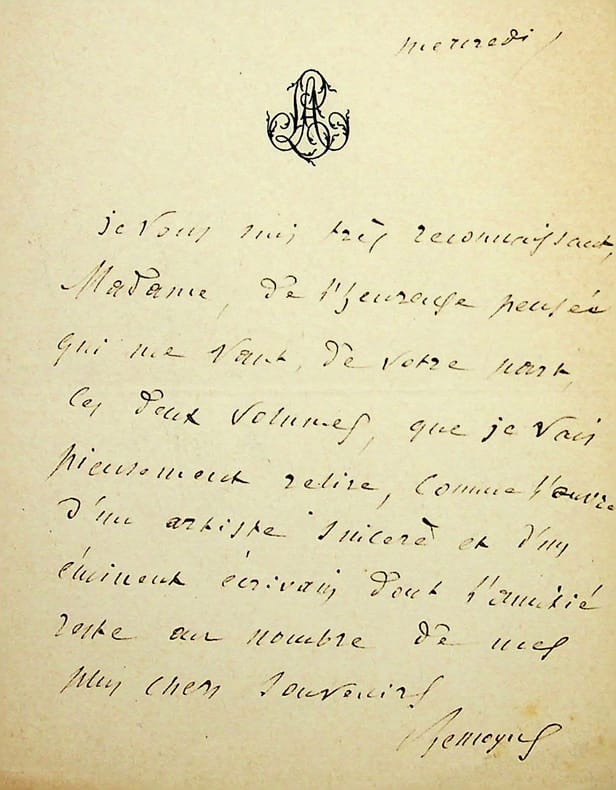 mercredi
je vous suis très reconnaissant,
Madame, de l'heureuse pensée
qui me vaut, de votre part,
les deux volumes, que je vais
pieusement relire, comme l'œuvre
d'un artiste sincère et d'un
éminent écrivain dont l'amitié
reste au nombre de mes
plus chers souvenirs